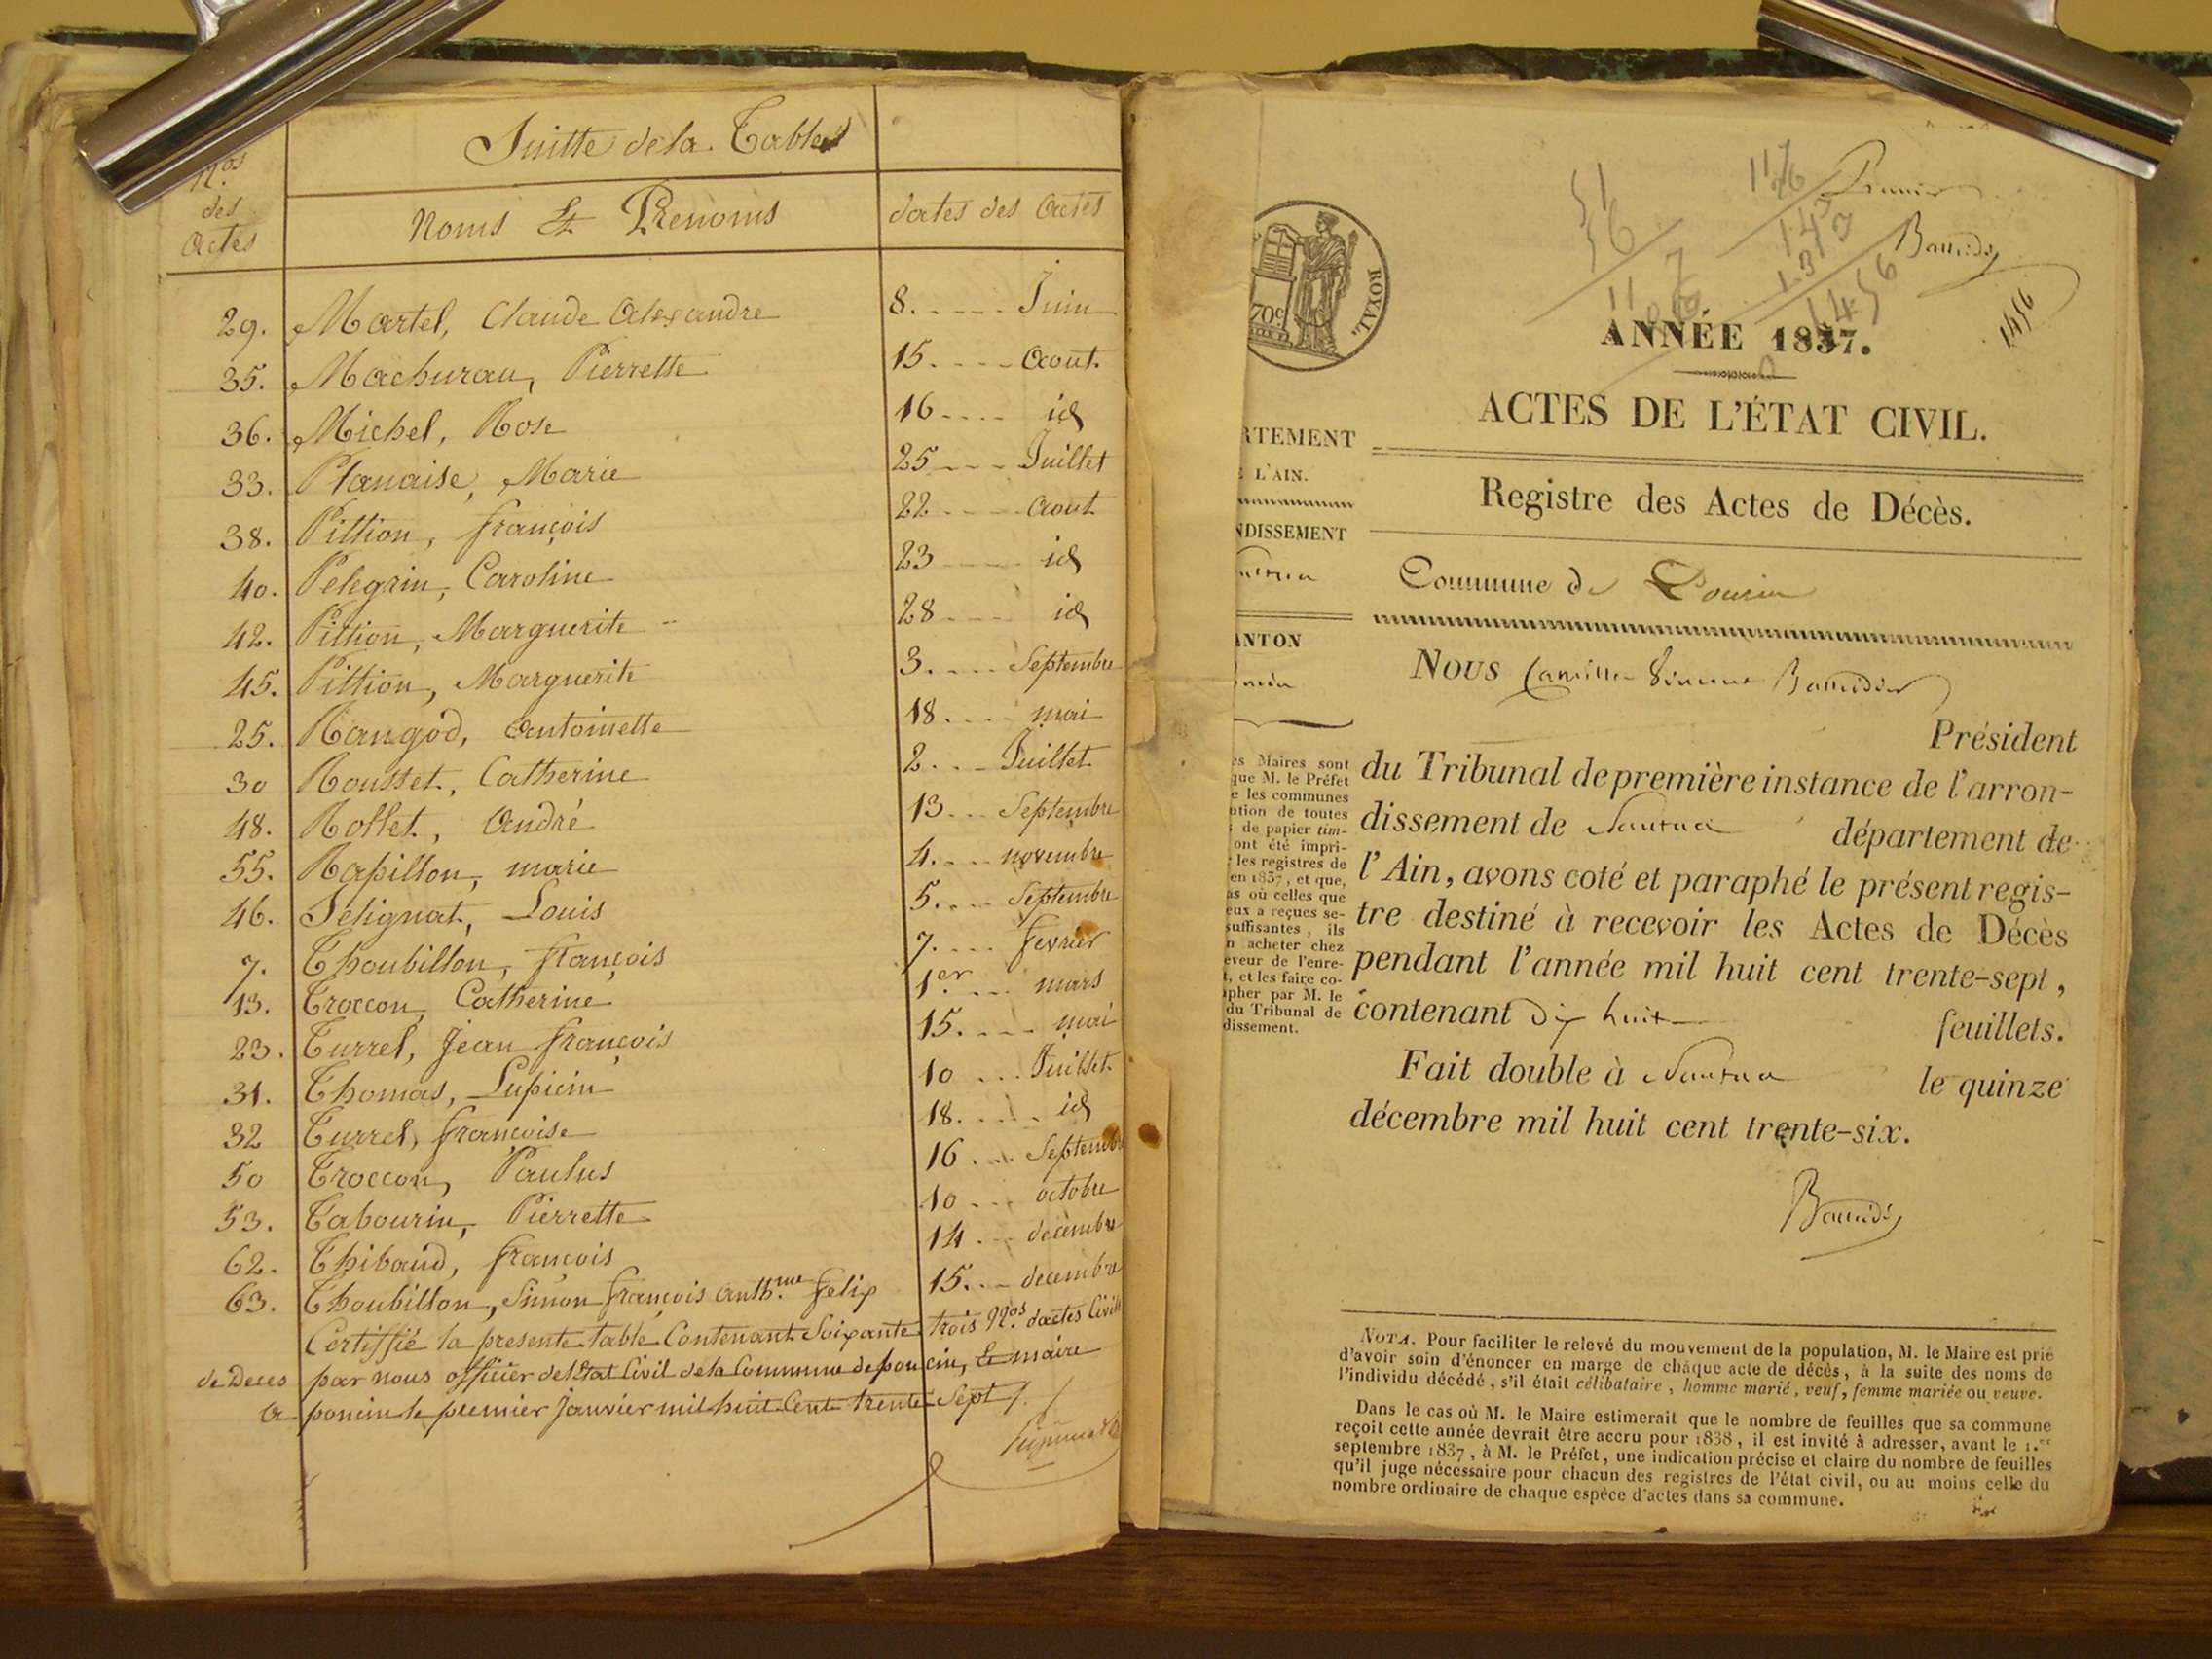 Suitte de la Table
Nos des actes
Noms Et Prenoms
dates des actes
29. Martel, Claude Alexandre 8. Juin
35. Machurau, Pierrette 15. aout
36. Michel, Rose 16 id
33. Planaise, Marie 25 Juillet
38. Pittion, françois 22 aout
40. Pelegrin, Caroline 23 id
42. Pittion, Marguerite 28 id
45. Pittion, Marguerite 3. Septembre
25. Rangod, antoinette 18. mai
30 Rousset, Catherine 2. Juillet
48. Rollet, andré 13. Septembre
55. Rapillon, marie 4. novembre
46. Selignat, Louis 5. Septembre
7. Thoubillon, françois 7. fevrier
13. Troccon, Catherine 1er mars
23. Turrel, Jean françois 15. mai
31. Thomas, Lupicin 10 Juillet
32 Turrel, françoise 18. id
50 Troccon, Paulus 16 Septembre
53. Tabourin, Pierrette 10 octobre
62. Thibaud, françois 14 decembre
63. Thoubillon, Simon françois anth.me felix 15. decembre
Certiffié la presente table Contenant Soixante trois Nos d'actes Civils
de Deces par nous officier de l'Etat Civil de la Commune de poncin, le maire
a poncin le premier janvier mil huit Cent trente Sept
51
56
1126
143
1313
1456
1456
ROYAL.
70c
ANNÉE 1837.
ACTES DE L'ÉTAT CIVIL.
Registre des Actes de Décès.
RTEMENT
L'AIN.
NDISSEMENT
ANTON
Commune de Poncin
Nous Camille
Président
du Tribunal de première instance de l'arron-
dissement de Nantua département de
l'Ain, avons coté et paraphé le présent regis-
tre destiné à recevoir les Actes de Décès
pendant l'année mil huit cent trente-sept,
contenant dix huit feuillets.
Fait double à Nantua le quinze
décembre mil huit cent trente-six.
es Maires sont
que M. le Préfet
e les communes
ation de toutes
de papier tim-
ont été impri-
les registres de
en 1837, et que,
as où celles que
eux a reçues se-
suffisantes, ils
n acheter chez
eveur de l'enre-
t, et les faire co-
apher par M. le
du Tribunal de
dissement.
NOTA. Pour faciliter le relevé du mouvement de la population, M. le Maire est prié
d'avoir soin d'énoncer en marge de chaque acte de décès, à la suite des noms de
l'individu décédé, s'il était célibataire, homme marié, veuf, femme mariée ou veuve.
Dans le cas où M. le Maire estimerait que le nombre de feuilles que sa commune
reçoit cette année devrait être accru pour 1838, il est invité à adresser, avant le 1.er
septembre 1837, à M. le Préfet, une indication précise et claire du nombre de feuilles
qu'il juge nécessaire pour chacun des registres de l'état civil, ou au moins celle du
nombre ordinaire de chaque espèce d'actes dans sa commune.